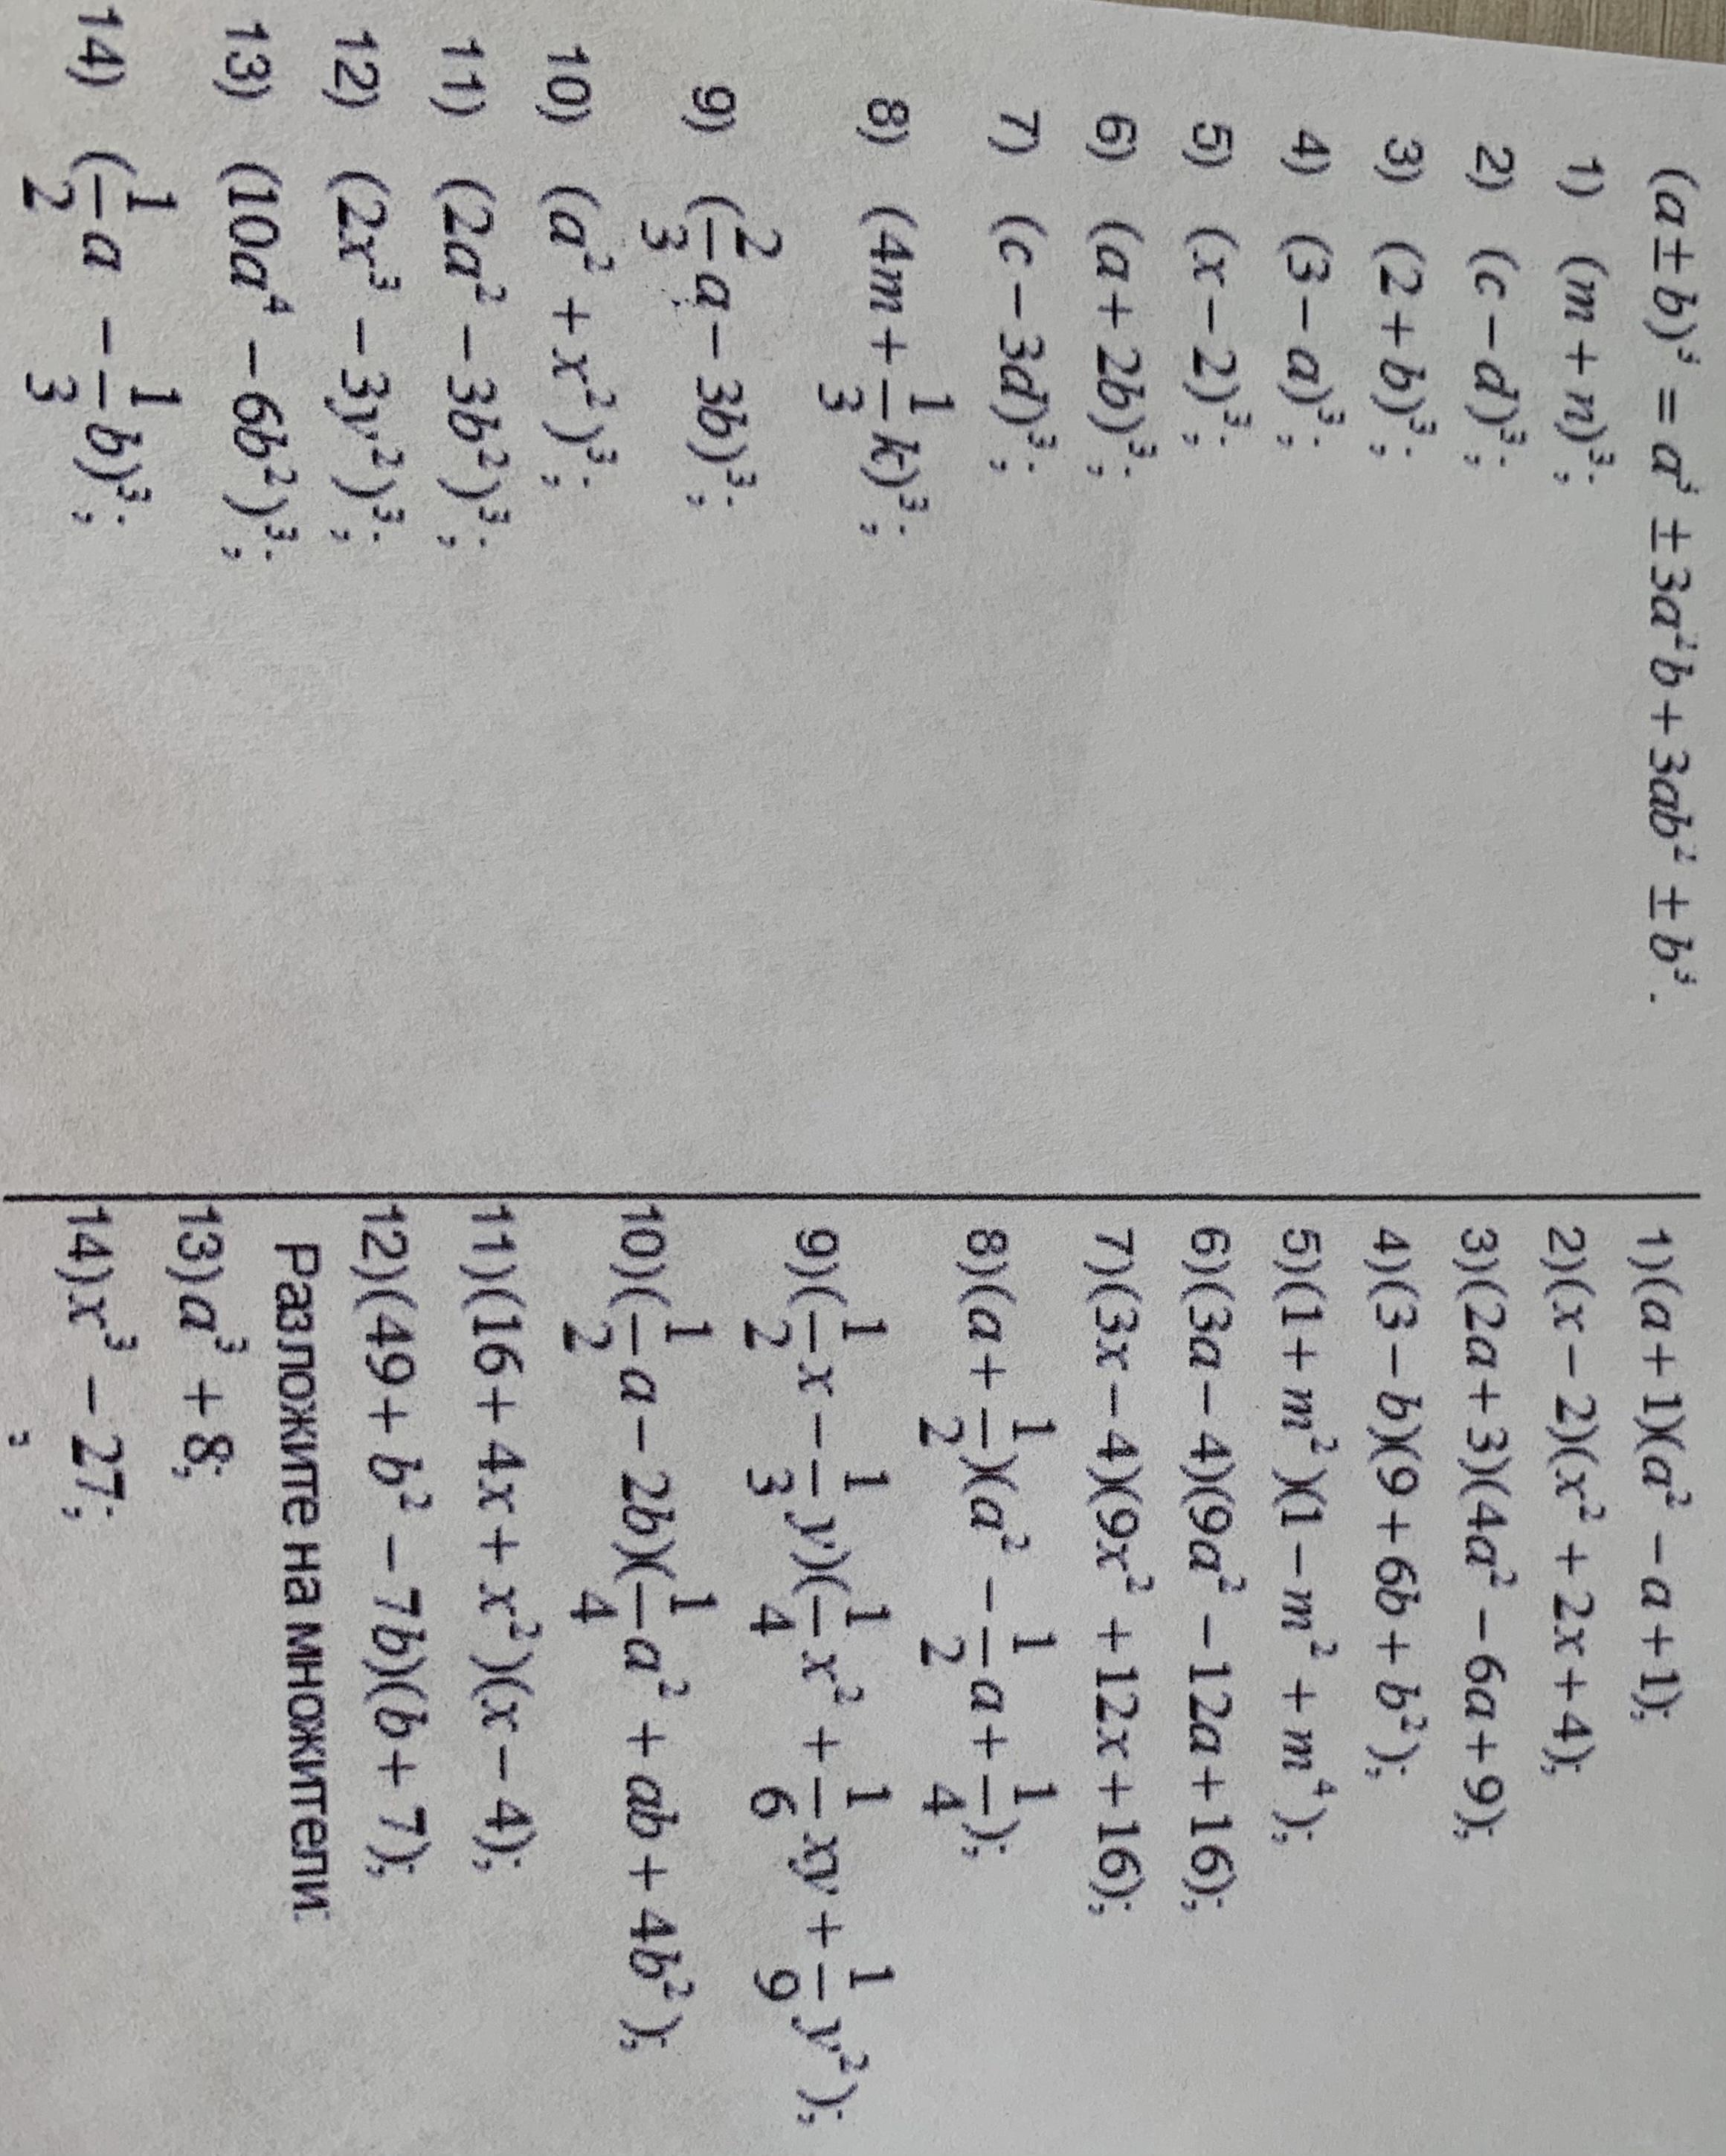 (a ± b)³ = a³ ± 3a²b + 3ab² ± b³.
1) (m + n)³;
2) (c − d)³;
3) (2 + b)³;
4) (3 − a)³;
5) (x − 2)³;
6) (a + 2b)³;
7) (c − 3d)³;
8) (4m + 1/3 k)³;
9) (2/3 a − 3b)³;
10) (a² + x²)³;
11) (2a² − 3b²)³;
12) (2x³ − 3y²)³;
13) (10a⁴ − 6b²)³;
14) (1/2 a − 1/3 b)³;
1)(a + 1)(a² − a + 1);
2)(x − 2)(x² + 2x + 4);
3)(2a + 3)(4a² − 6a + 9);
4)(3 − b)(9 + 6b + b²);
5)(1 + m²)(1 − m² + m⁴);
6)(3a − 4)(9a² − 12a + 16);
7)(3x − 4)(9x² + 12x + 16);
8)(a + 1/2)(a² − 1/2 a + 1/4);
9)(1/2 x − 1/3 y)(1/4 x² + 1/6 xy + 1/9 y²);
10)(1/2 a − 2b)(1/4 a² + ab + 4b²);
11)(16 + 4x + x²)(x − 4);
12)(49 + b² − 7b)(b + 7);
Разложите на множители:
13)a³ + 8;
14)x³ − 27;